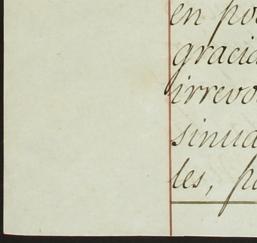 en po
gracia
irrevo
sinua
les, p